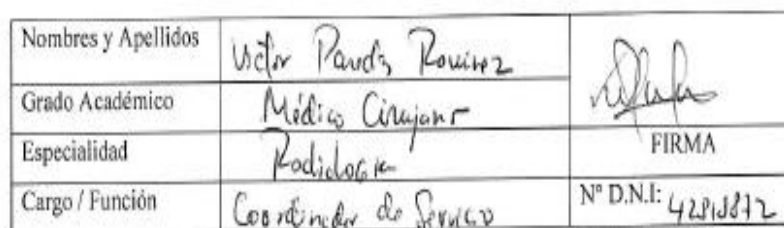 Nombres y Apellidos Victor Paredes Ramirez
Grado Académico Médico Cirujano
Especialidad Radiología
FIRMA
Cargo / Función Coordinador de Servicio
Nº D.N.I: